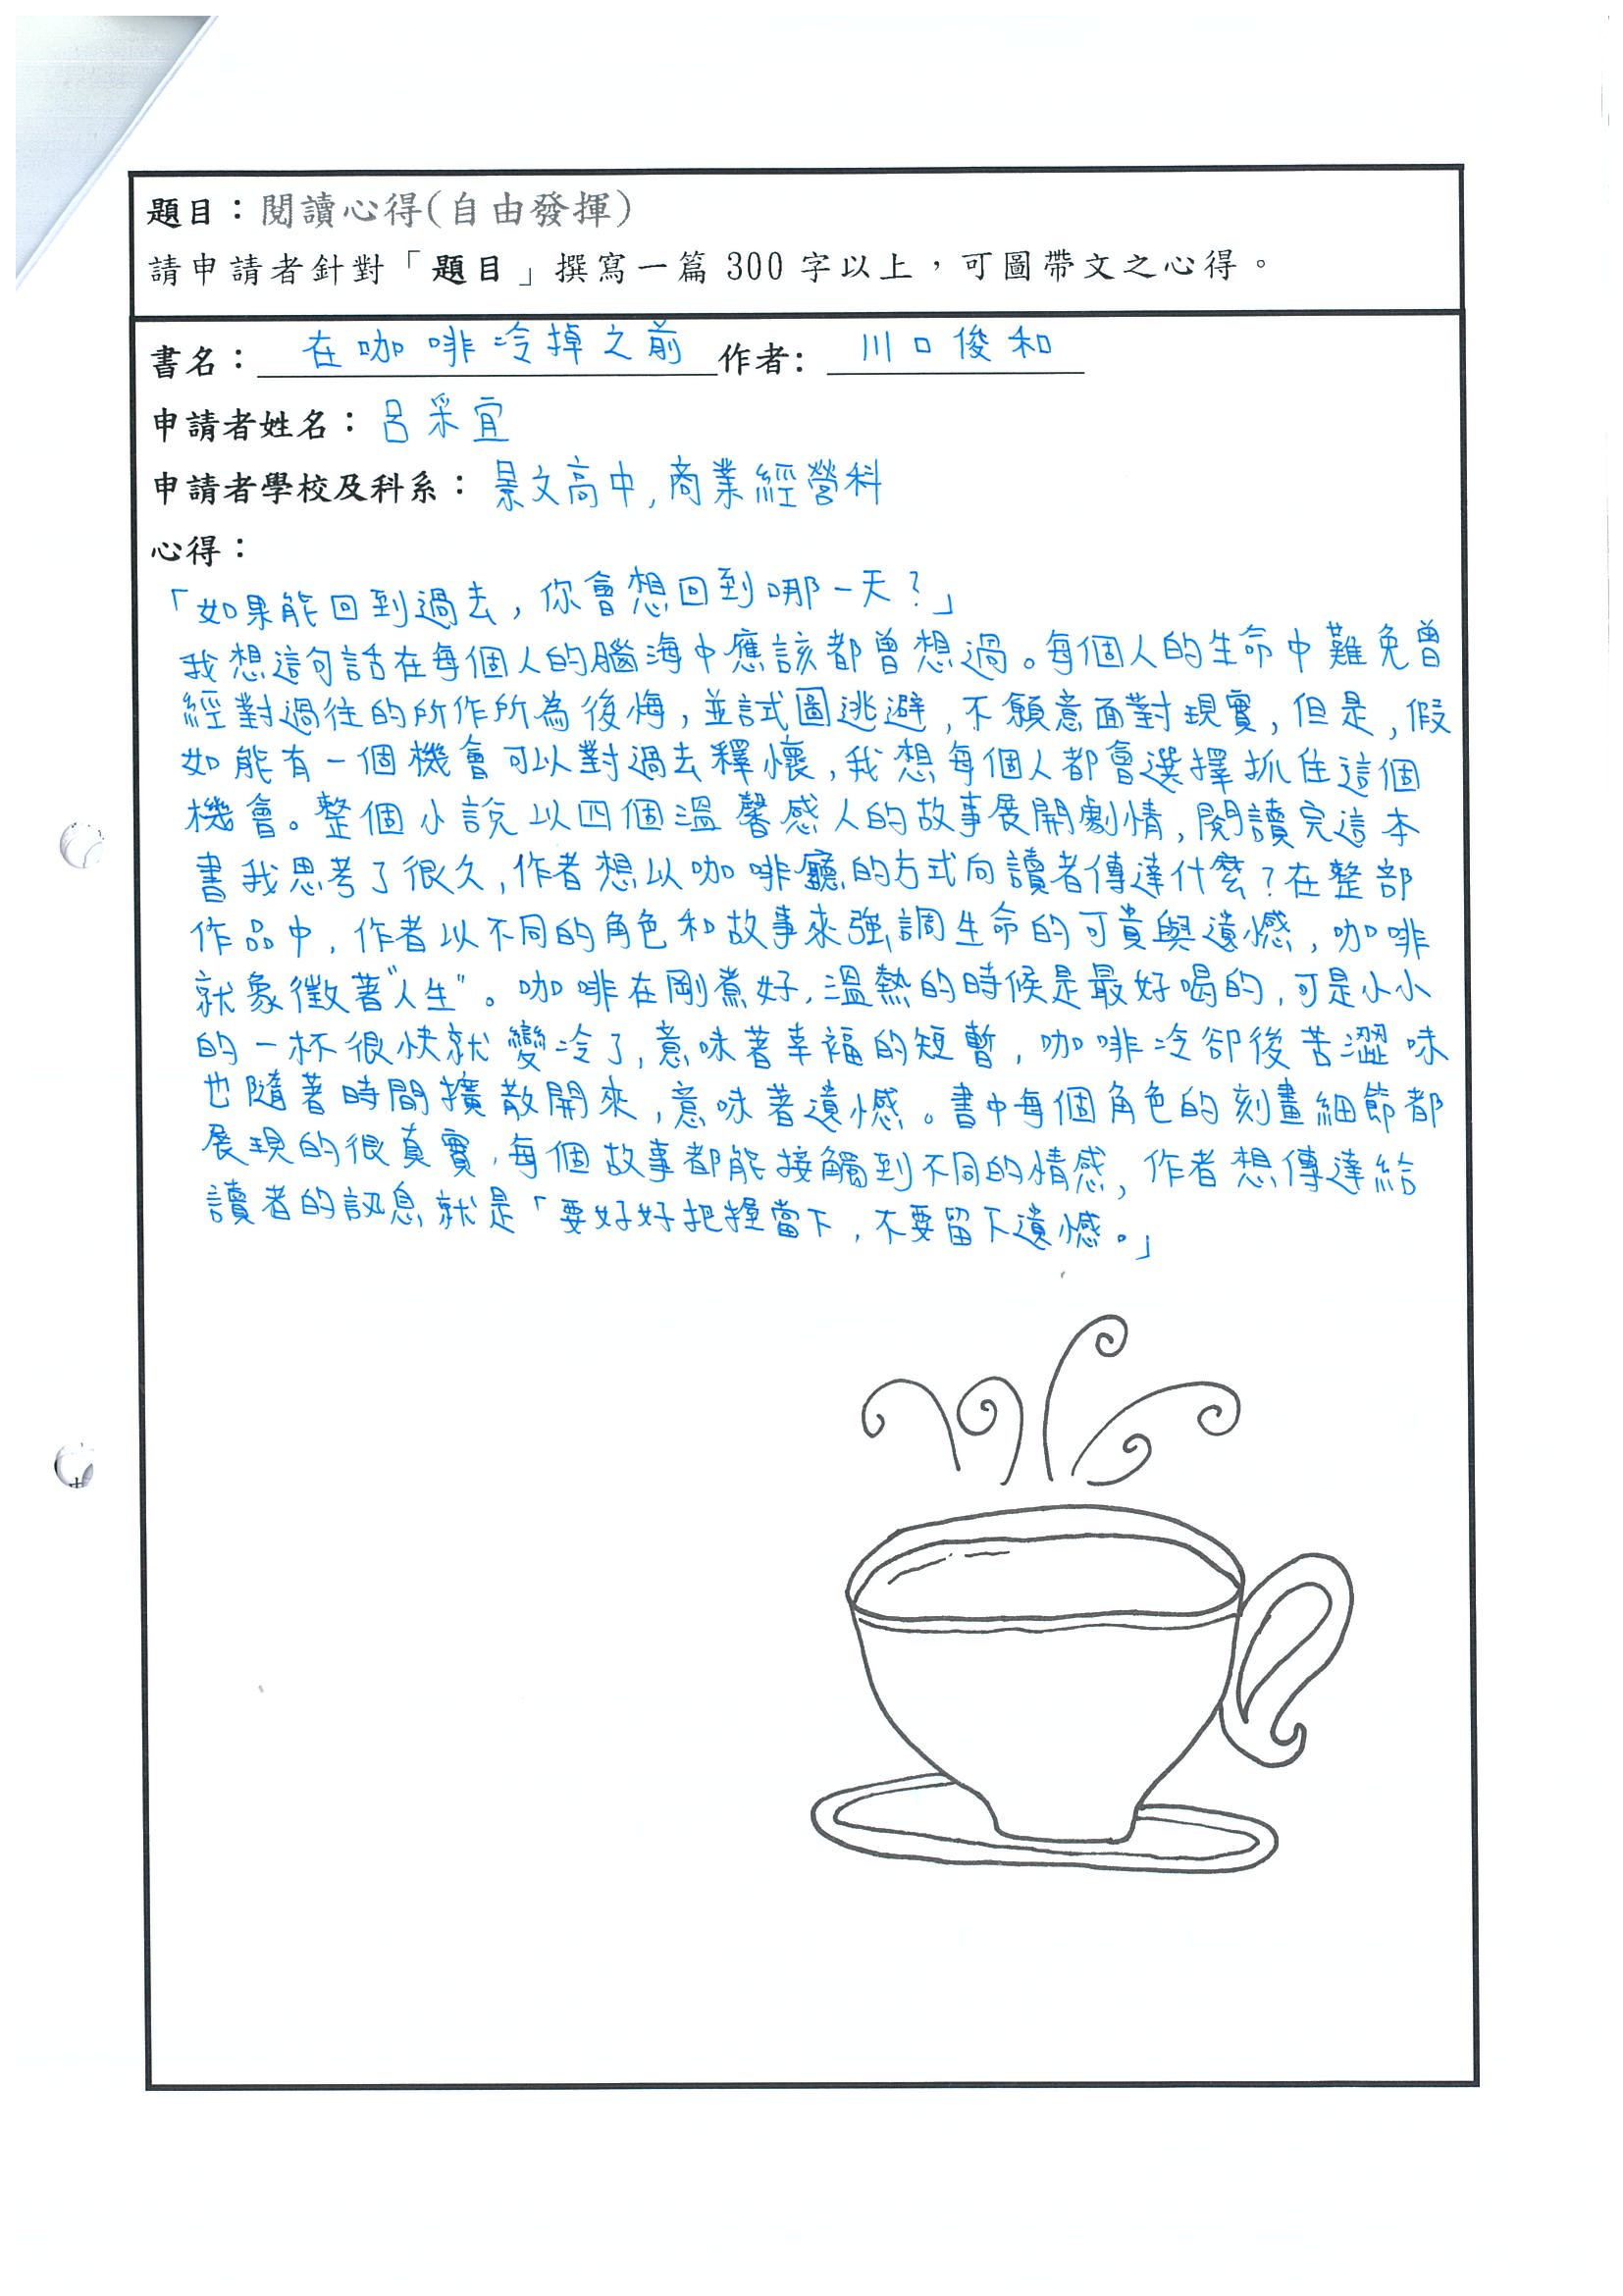 題目：閱讀心得(自由發揮)
請申請者針對「題目」撰寫一篇 300 字以上，可圖帶文之心得。
書名：在咖啡冷掉之前 作者: 川口俊和
申請者姓名：呂采宜
申請者學校及科系：景文高中,商業經營科
心得：
「如果能回到過去,你會想回到哪一天?」
我想這句話在每個人的腦海中應該都曾想過。每個人的生命中難免曾
經對過往的所作所為後悔,並試圖逃避,不願意面對現實,但是,假
如能有一個機會可以對過去釋懷,我想每個人都會選擇抓住這個
機會。整個小說以四個溫馨感人的故事展開劇情,閱讀完這本
書我思考了很久,作者想以咖啡廳的方式向讀者傳達什麼?在整部
作品中,作者以不同的角色和故事來強調生命的可貴與遺憾,咖啡
就象徵著"人生"。咖啡在剛煮好,溫熱的時候是最好喝的,可是小小
的一杯很快就變冷了,意味著幸福的短暫,咖啡冷卻後苦澀味
也隨著時間擴散開來,意味著遺憾。書中每個角色的刻畫細節都
展現的很真實,每個故事都能接觸到不同的情感,作者想傳達給
讀者的訊息就是「要好好把握當下,不要留下遺憾。」